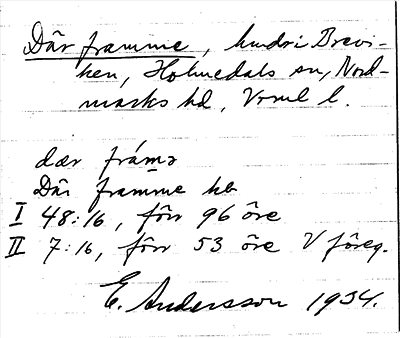 Där framme, hmdri Brevi-
ken, Holmedals sn, Nord-
marks hd, Vrml l.
dær frámə
Där framme hb
I 48:16, förr 96 öre
II 7:16, förr 53 öre V föreg.
E. Andersson 1934.